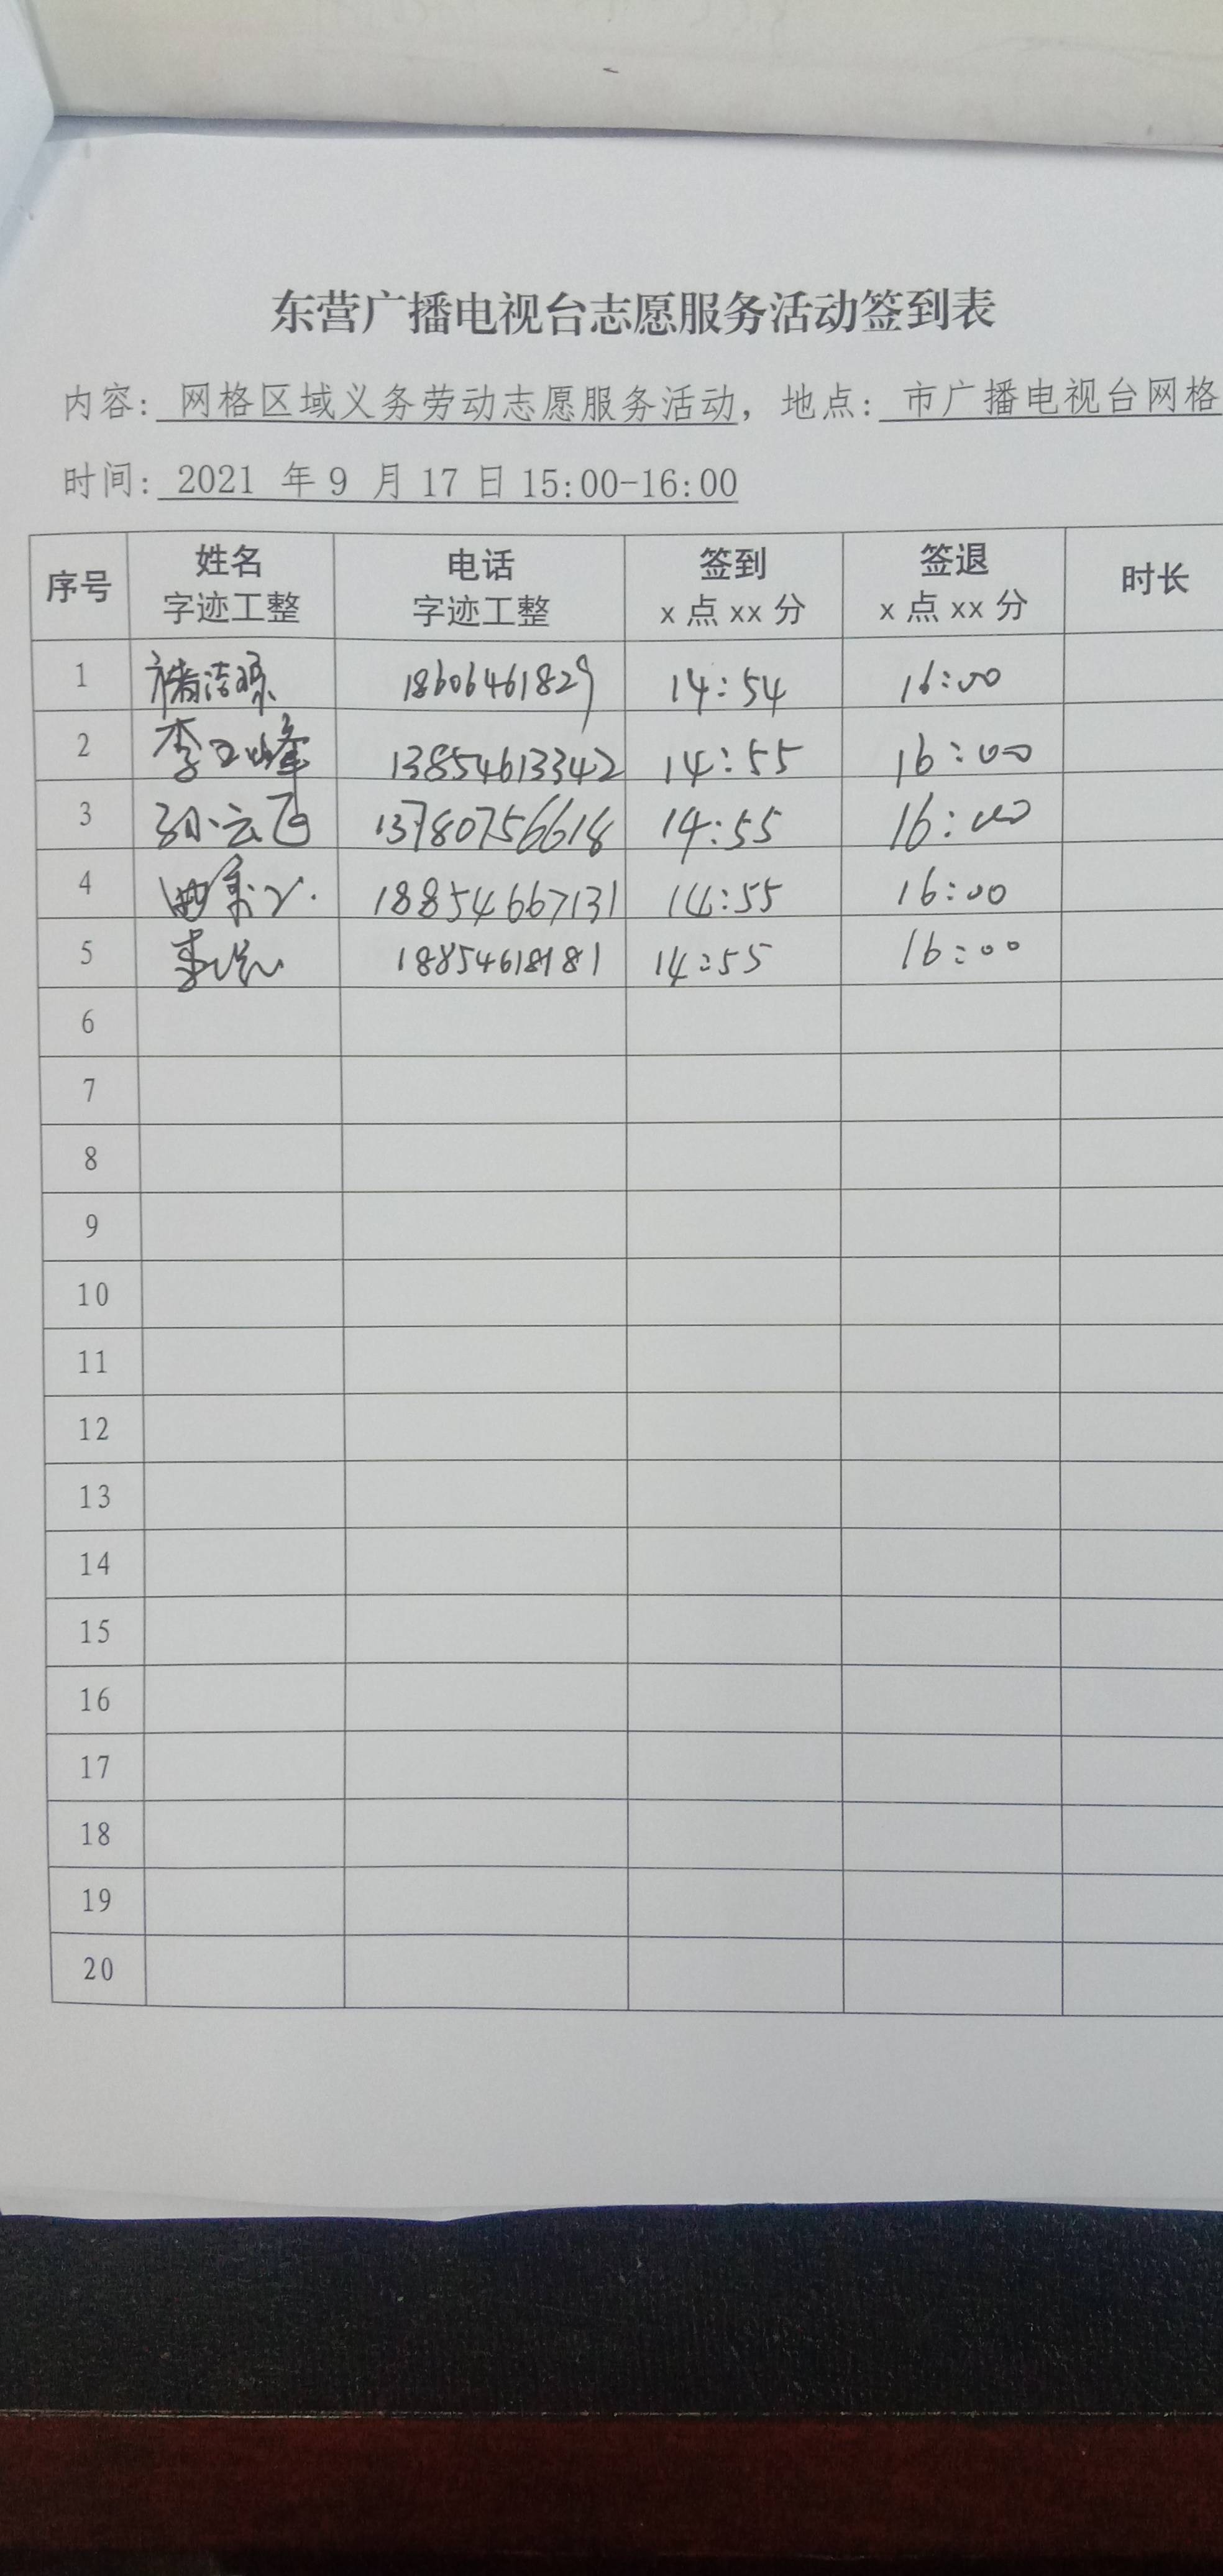 东营广播电视台志愿服务活动签到表
内容: 网格区域义务劳动志愿服务活动, 地点: 市广播电视台网格
时间: 2021 年 9 月 17 日 15:00-16:00
序号 姓名 字迹工整 电话 字迹工整 签到 x 点 xx 分 签退 x 点 xx 分 时长
1 18606461829 14:54 16:00
2 李玉峰 13854613342 14:55 16:00
3 孙云飞 13780756618 14:55 16:00
4 18854667131 14:55 16:00
5 18854618181 14:55 16:00
6
7
8
9
10
11
12
13
14
15
16
17
18
19
20